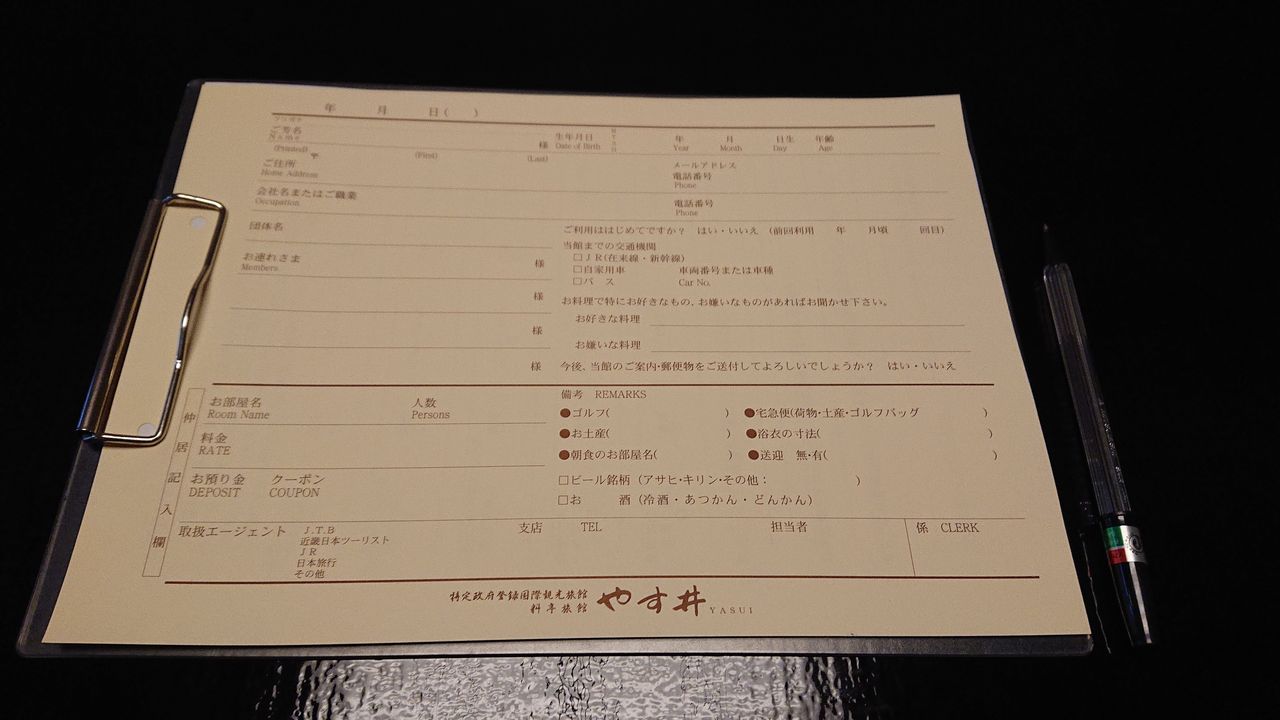 年 月 日( )
ご芳名 様 生年月日 年 月 日生 年齢
Name Date of Birth Year Month Day Age
(Printed) (First) (Last)
〒
ご住所 メールアドレス
Home Address 電話番号
Phone
会社名またはご職業 電話番号
Occupation Phone
団体名
お連れさま 様
Members
様
様
様
ご利用ははじめてですか? はい・いいえ (前回利用 年 月頃 回目)
当館までの交通機関
□JR(在来線・新幹線)
□自家用車 車両番号または車種
□バス Car No.
お料理で特にお好きなもの、お嫌いなものがあればお聞かせ下さい。
お好きな料理
お嫌いな料理
今後、当館のご案内・郵便物をご送付してよろしいでしょうか? はい・いいえ
仲居記入欄
お部屋名 人数
Room Name Persons
料金
RATE
お預り金 クーポン
DEPOSIT COUPON
備考 REMARKS
●ゴルフ( ) ●宅急便(荷物・土産・ゴルフバッグ )
●お土産( ) ●浴衣の寸法( )
●朝食のお部屋名( ) ●送迎 無・有( )
□ビール銘柄 (アサヒ・キリン・その他: )
□お 酒 (冷酒・あつかん・どんかん)
取扱エージェント J.T.B 支店 TEL 担当者 係 CLERK
近畿日本ツーリスト
JR
日本旅行
その他
特定政府登録国際観光旅館
料亭旅館 やす井 YASUI